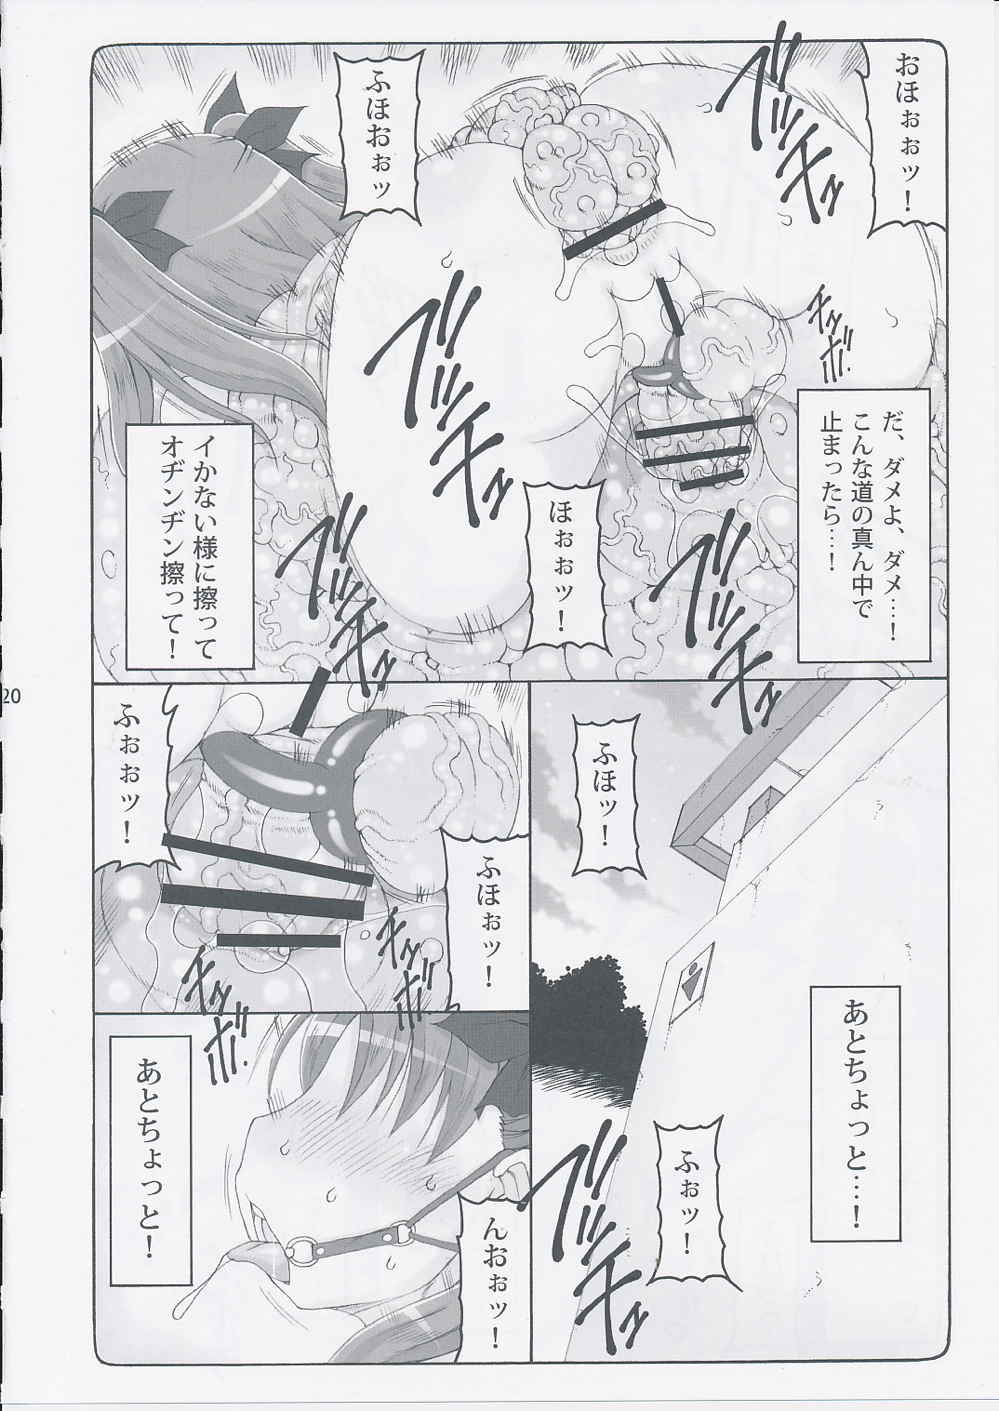 おほぉぉッ！
ブッヂュ
ふほおぉッ
チュッボ
だ、ダメよ、ダメ…！
こんな道の真ん中で
止まったら…！
ブッヂュ
ほぉぉッ！
イかない様に擦って
オヂンヂン擦って！
ブッチュ
ブッヂュ
ふほッ！
あとちょっと…！
ふぉッ！
ブッチュ
ふぉぉッ！
ふほぉッ！
チュッボ
チュッボ
あとちょっと！
んおぉッ！
20